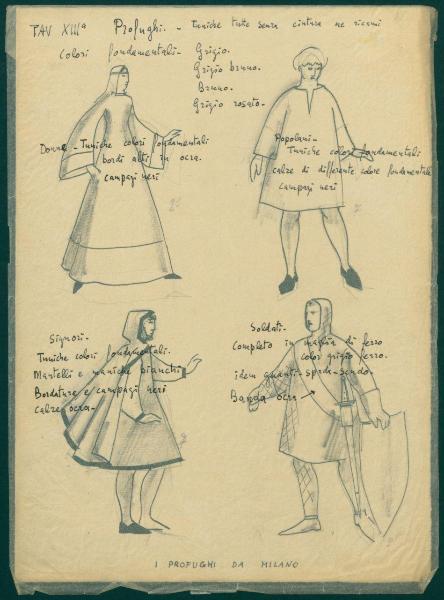 TAV XIIIª Profughi. - Tuniche tutte senza cintura ne ricami
Colori fondamentali - Grigio.
Grigio bruno.
Bruno.
Grigio rosato.
Donne - Tuniche colori fondamentali
bordi alti in ocra.
campagi neri
Popolani -
Tuniche colori fondamentali
calze di differente colore fondamentale
campagi neri
Signori -
Tuniche colori fondamentali.
Mantelli e maniche bianchi
Bordature e campagi neri
calze ocra -
Soldati -
Completo in maglia di ferro
color grigio ferro.
idem guanti - spada - scudo.
Banda ocra
I PROFUGHI DA MILANO